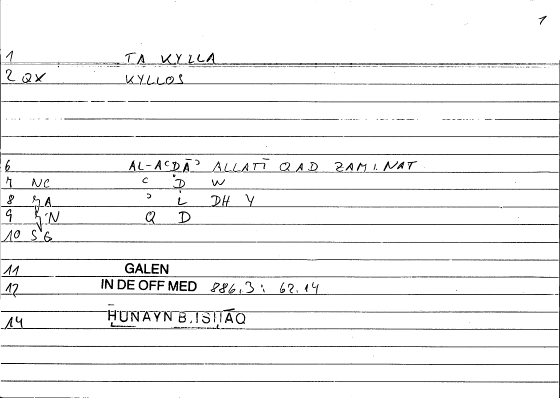 1
1 TA KYLLA
2 QX KYLLOS
6 AL-AʿḌĀʾ ALLATĪ QAD ZAMINAT
7 NC ʿ Ḍ W
8 RA ʾ L DH Y
9 RN Q D
10 SG
11 GALEN
12 IN DE OFF MED 886.3 : 62.14
14 ḤUNAYN B. ISḤĀQ